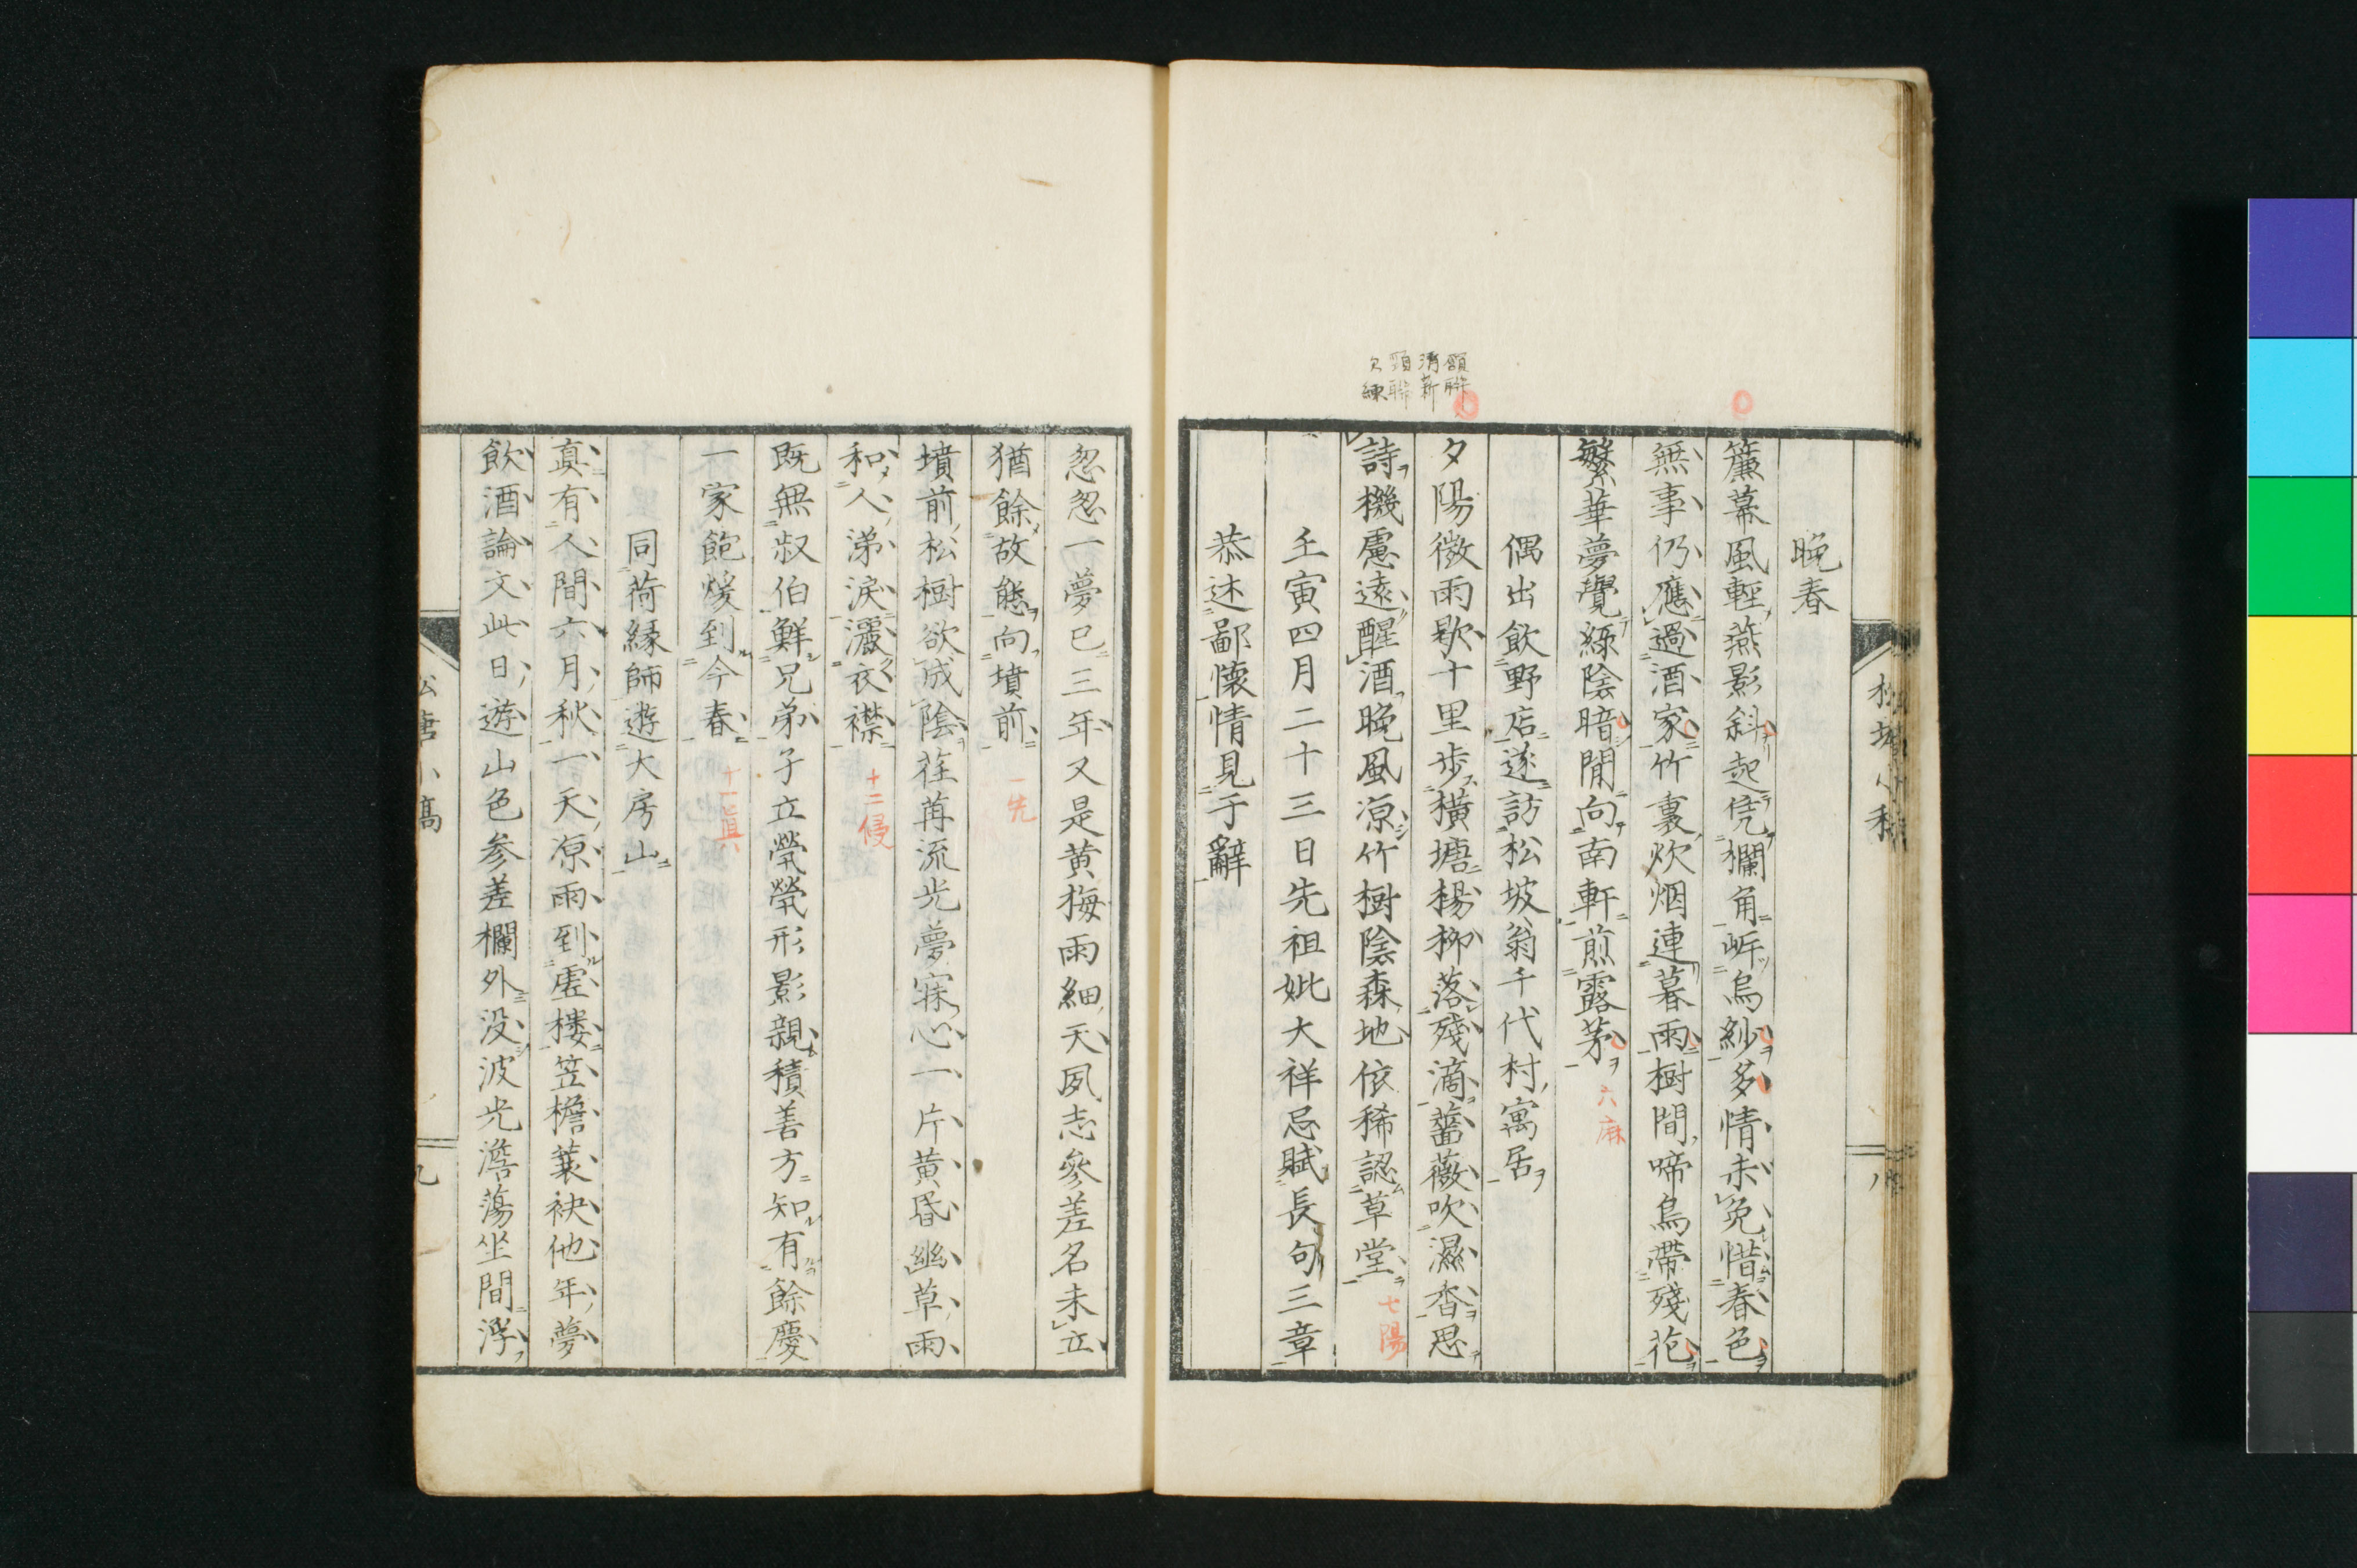 晩春
簾幕風輕燕影斜起凭欄角岸烏紗多情未免惜春色
無事仍應過酒家竹裏炊烟連暮雨樹間啼鳥帶殘花
繁華夢覺緑陰暗閒向南軒煎露芽
六麻
偶出飲野店遂訪松坡翁千代村寓居
額聯
清新
頸聯
欠練
夕陽微雨歇十里步横塘楊柳落殘滴薔薇吹濕香思
詩機慮遠醒酒晩風凉竹樹陰森地依稀認草堂
七陽
壬寅四月二十三日先祖妣大祥忌賦長句三章
恭述鄙懷情見于辭
忽忽一夢已三年又是黄梅雨細天夙志參差名未立
猶餘故態向墳前
一先
墳前松樹欲成陰荏苒流光夢寐心一片黄昏幽草雨
和人涕淚灑衣襟
十二侵
既無叔伯鮮兄弟子立煢煢形影親積善方知有餘慶
一家飽煖到今春
十一眞
同荷縁師遊大房山
真有人間六月秋一天凉雨到虚樓笠檐蓑袂他年夢
飲酒論文此日遊山色参差欄外没波光澹蕩坐間浮
九